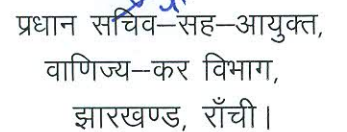 प्रधान सचिव–सह–आयुक्त,
वाणिज्य–कर विभाग,
झारखण्ड, राँची।